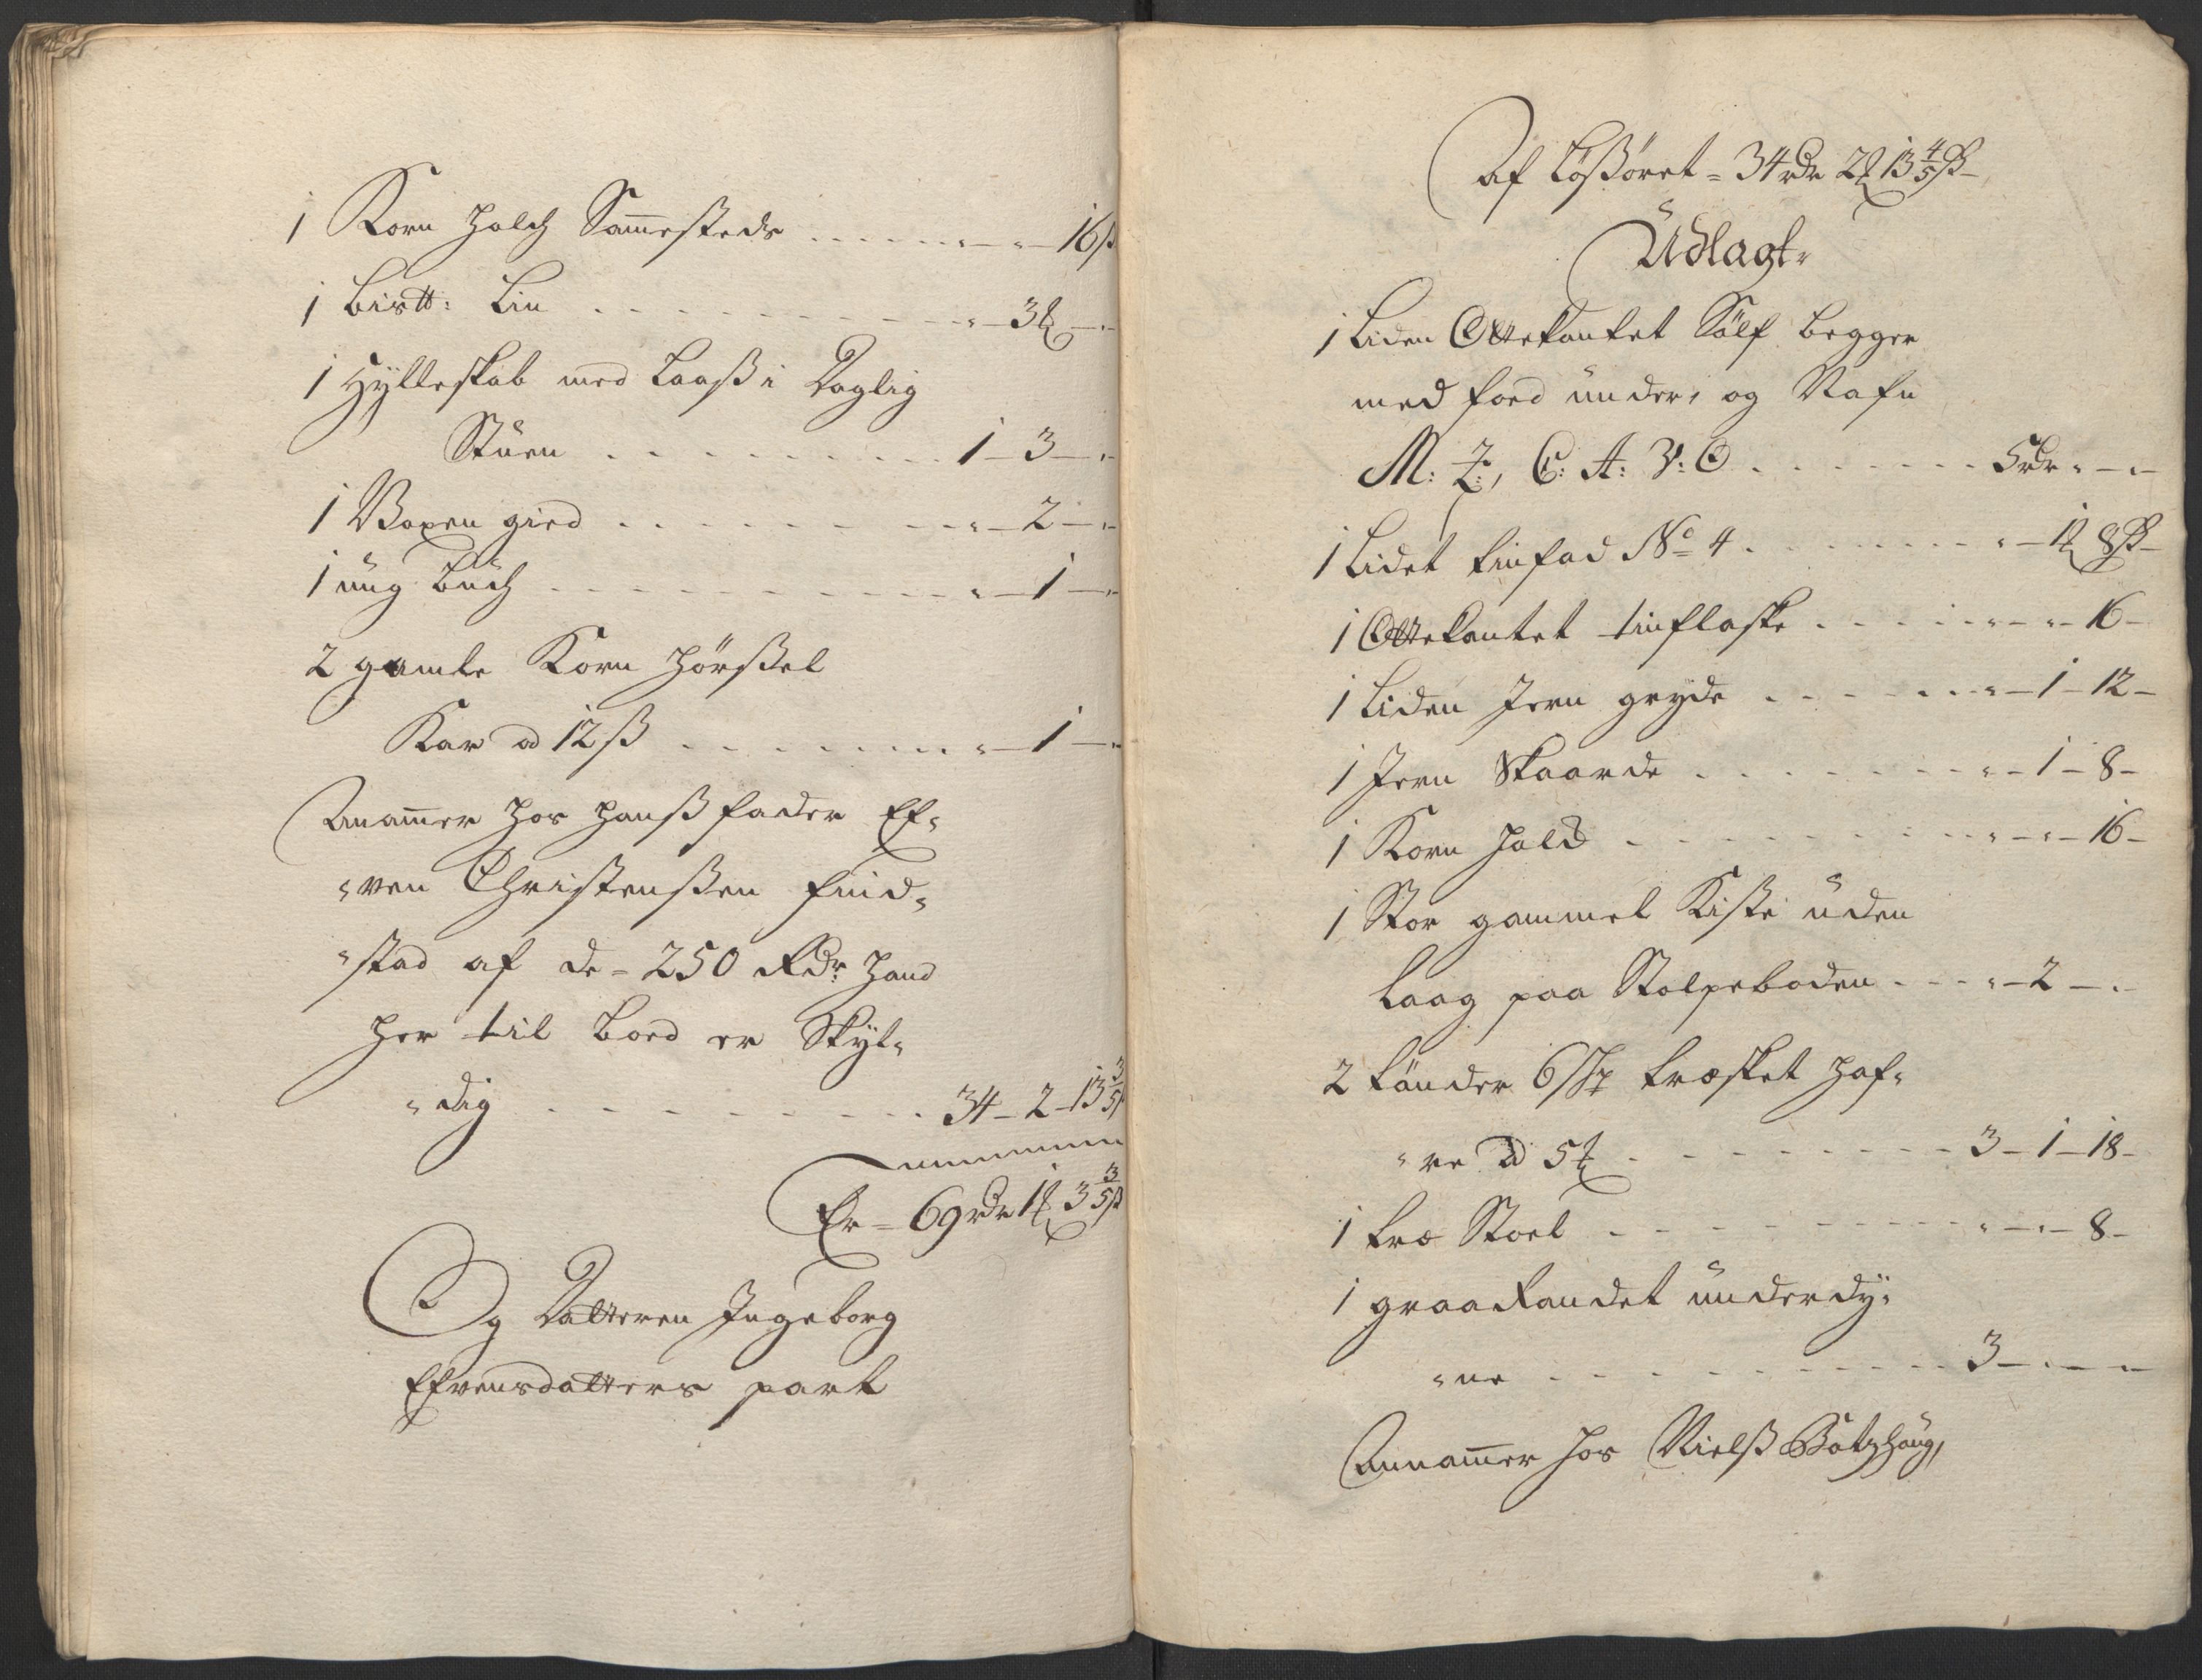 1 Korn Holch Sam̄esteds . . . . . . " — " — 16 ß
1 Bistt: Lin . . . . . . " — 3 ₰ — "
1 Hÿlleskab med Laaß i Daglig
Stuen . . . . . . 1 — 3 — "
1 Voxen gied . . . . . . " — 2 — "
1 ung Buch . . . . . . " — 1 — "
2 gamle Korn Hörßel
Kar a 12 ß . . . . . . " — 1 — "
Anam̄er hos hanß fader Ef-
"ven Christenßen find-
"stad af de = 250 Rdr hand
her til Boed er Skÿl-
"dig . . . . . . 34 – 2 – 13 3/5 ß
Er = 69 rdr 1 ₰ 3 3/5 ß
Og Datteren Ingeborg
Efvensdatters part
Af Lößöret = 34 rdr 2 ₰ 13 4/5 ß
Udlagt
1 Liden Ottekantet Sölf Begger
med foed under, og Nafn
M: J:, C: A: V: O . . . . . . 5 rdr " — "
1 Lidet tinfad No 4 . . . . . . " — 1 ₰ 8 ß
1 Ottekantet tinflaske . . . . . . " — " — 16 –
1 Liden Jern grÿde . . . . . . " — 1 – 12 –
1 Jern Skaarde . . . . . . " – 1 – 8 –
1 Korn Hold . . . . . . " — " – 16 –
1 Stor gammel Kiste uden
Laag paa Stolpeboden . . . . " – 2 — "
2 tønder 6 træsket Haf-
"re a 5 ₰ . . . . . . 3 – 1 – 18 –
1 træ Stoel . . . . . . " — " – 8 –
1 graaRandet underdÿ-
"ne . . . . . . 3 — " — "
Annam̄er hos Nielß Botzhaug,